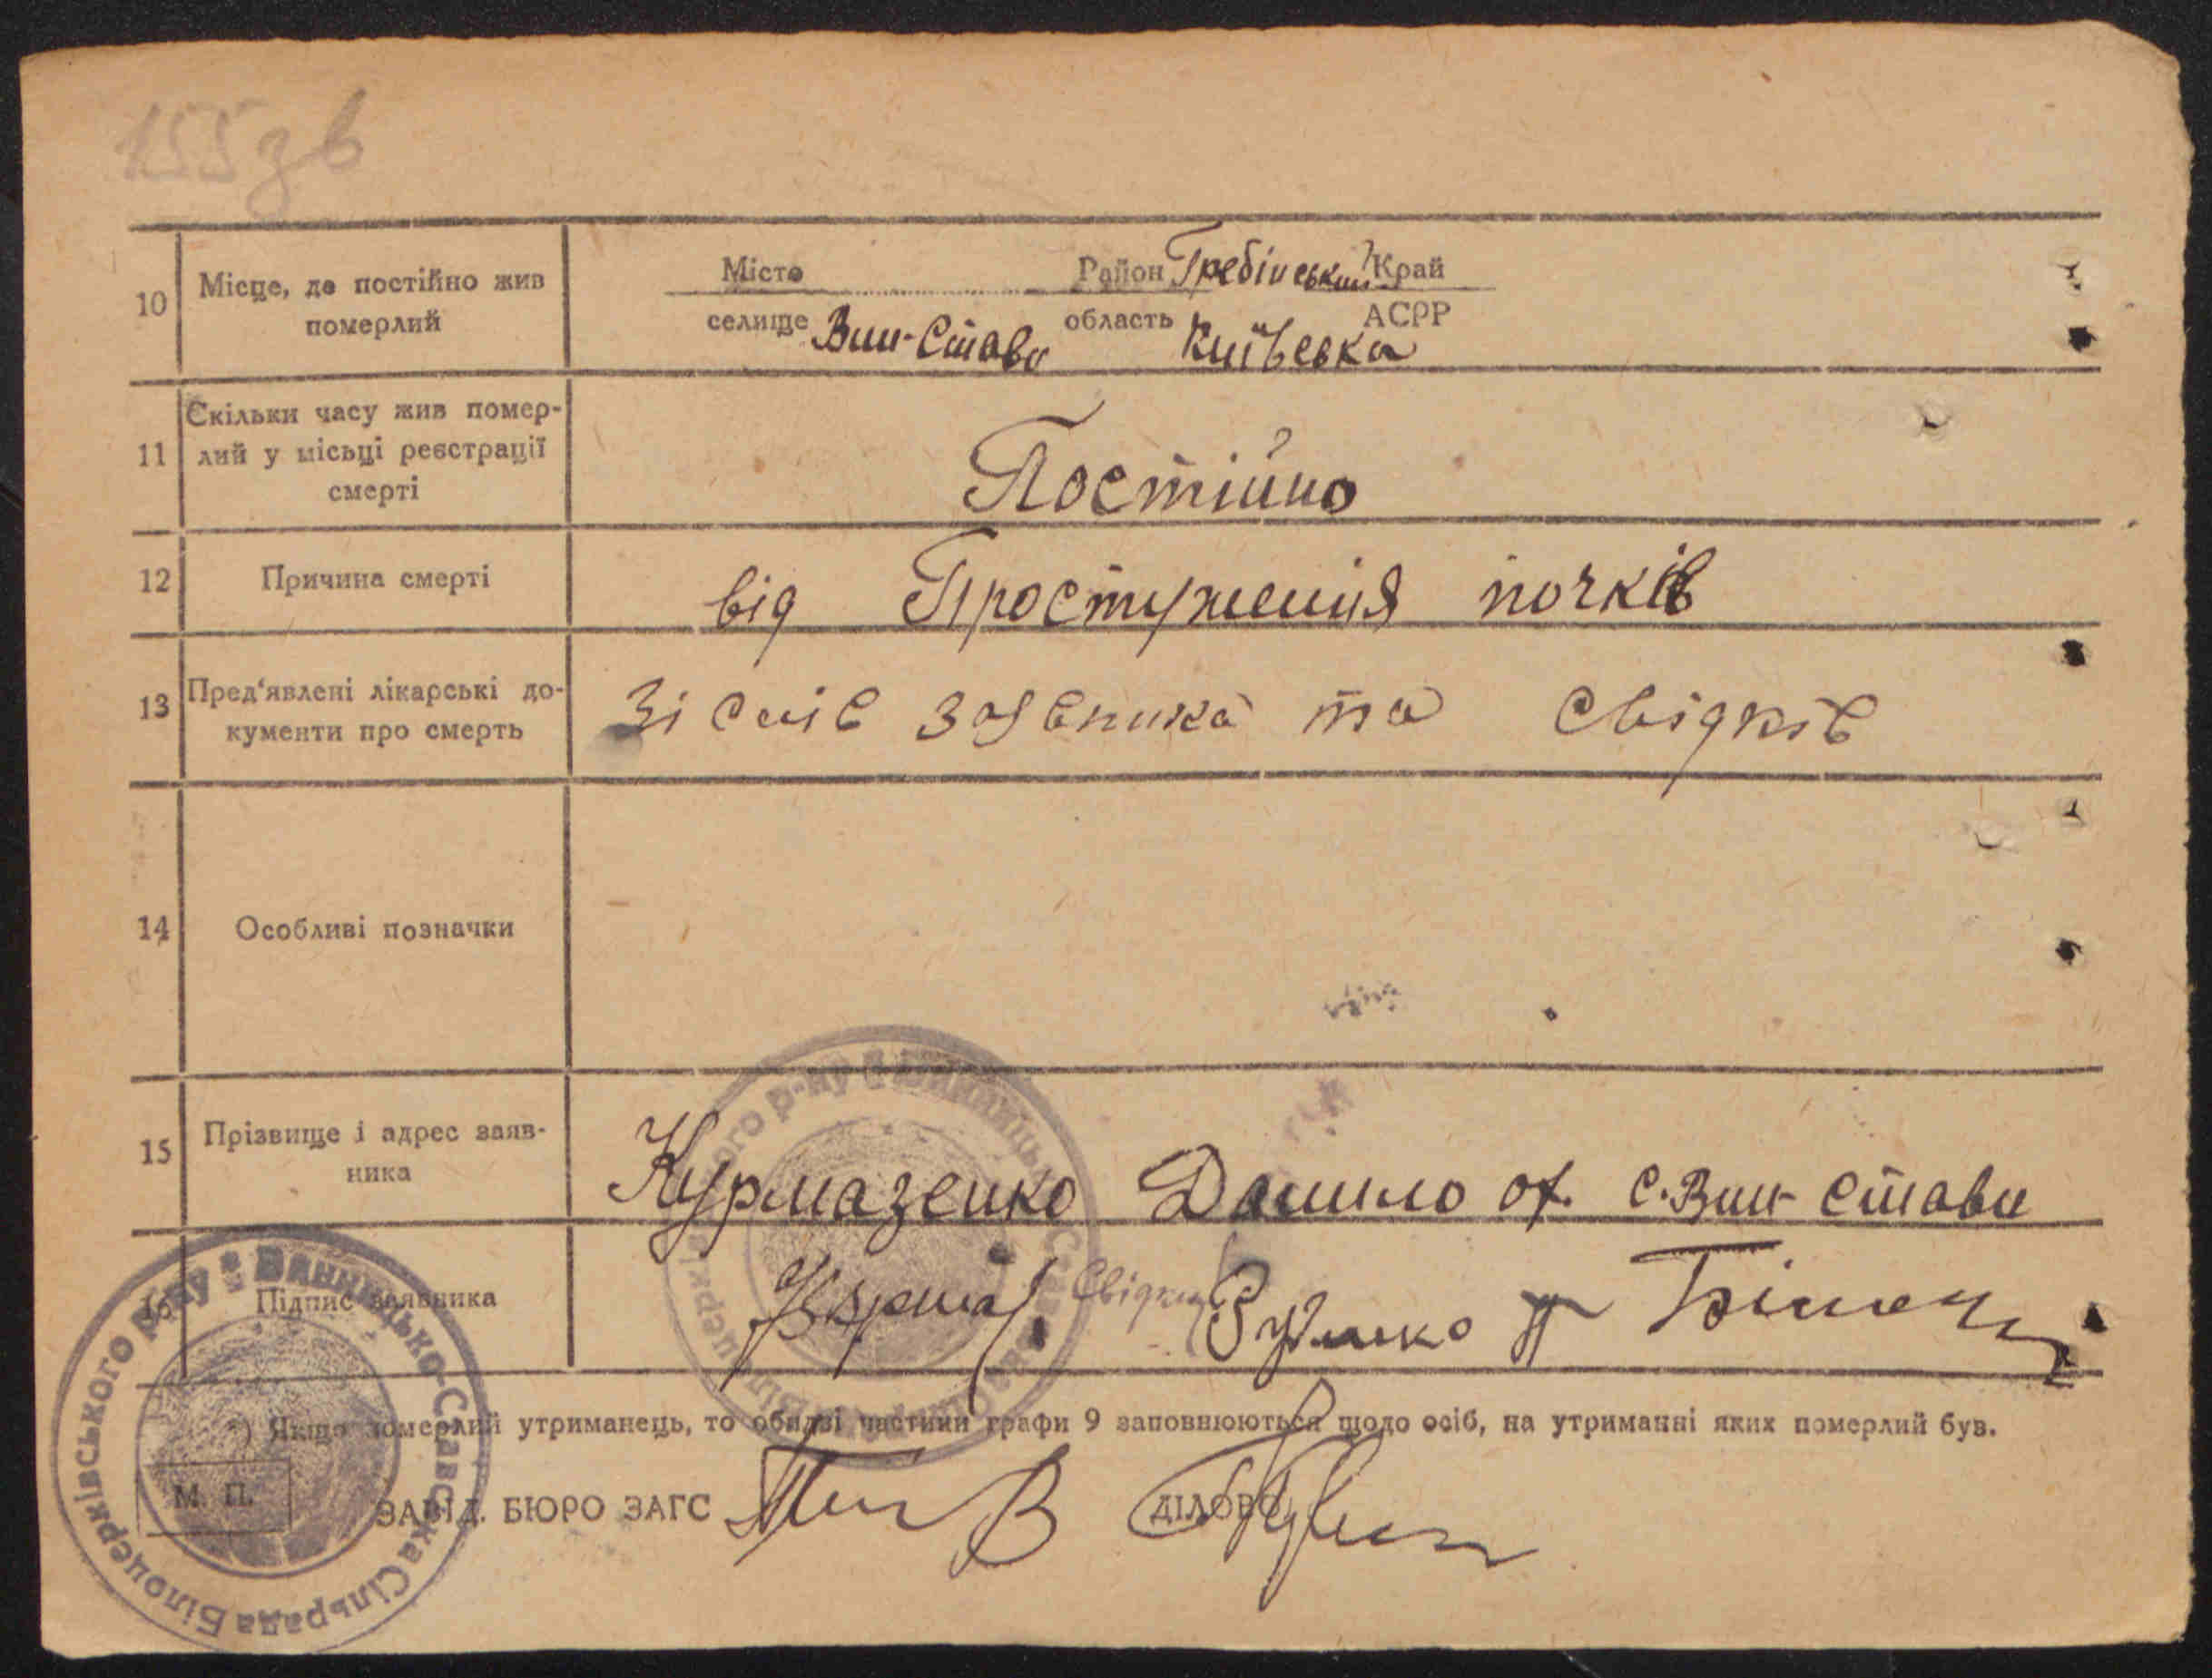 155 зв
10 Місце, де постійно жив померлий
Місто Район Гребінський Край
селище Вин-Стави область Київська АСРР
11 Скільки часу жив помер-
лий у місьці реєстрації
смерті
Постійно
12 Причина смерті від Простуження почків
13 Пред'явлені лікарські до-
кументи про смерть
Зі слів заявника та свідків
14 Особливі позначки
15 Прізвище і адрес заяв-
ника
Курмазенко Данило с. Вин-Стави
16 Підпис заявника Курма Свідки
*) Якщо померлий утриманець, то обидві частини графи 9 заповнюються щодо осіб, на утриманні яких померлий був.
М. П. ЗАВІД. БЮРО ЗАГС ДІЛОВОД
Винницько-Ставська Сільрада Білоцерківського р-ну